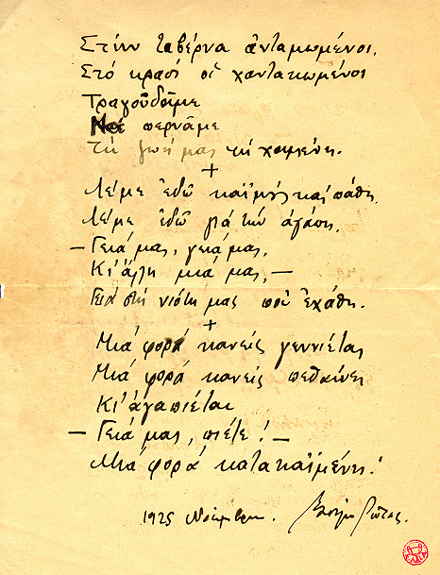 Στήν ταβέρνα ἀνταμωμένοι.
Στό κρασί οἱ χαντακωμένοι
Τραγουδοῦμε
περνᾶμε
Τή ζωή μας τή χαμένη.
+
Λέμε ἐδῶ καϊμούς καί πάθη
Λέμε ἐδῶ γιά τήν ἀγάπη.
— Γειά μας, γειά μας,
Κι' ἄλλη μιά μας, —
Γειά στή νιότη μας πού ἐχάθη.
+
Μιά φορά κανείς γεννιέται
Μιά φορά κανείς πεθαίνει
Κι' ἀγαπιέται
— Γειά μας, πιέτε! —
Μιά φορά κατακαϊμένη!
1925 Νοέμβρη. Ρώτας.